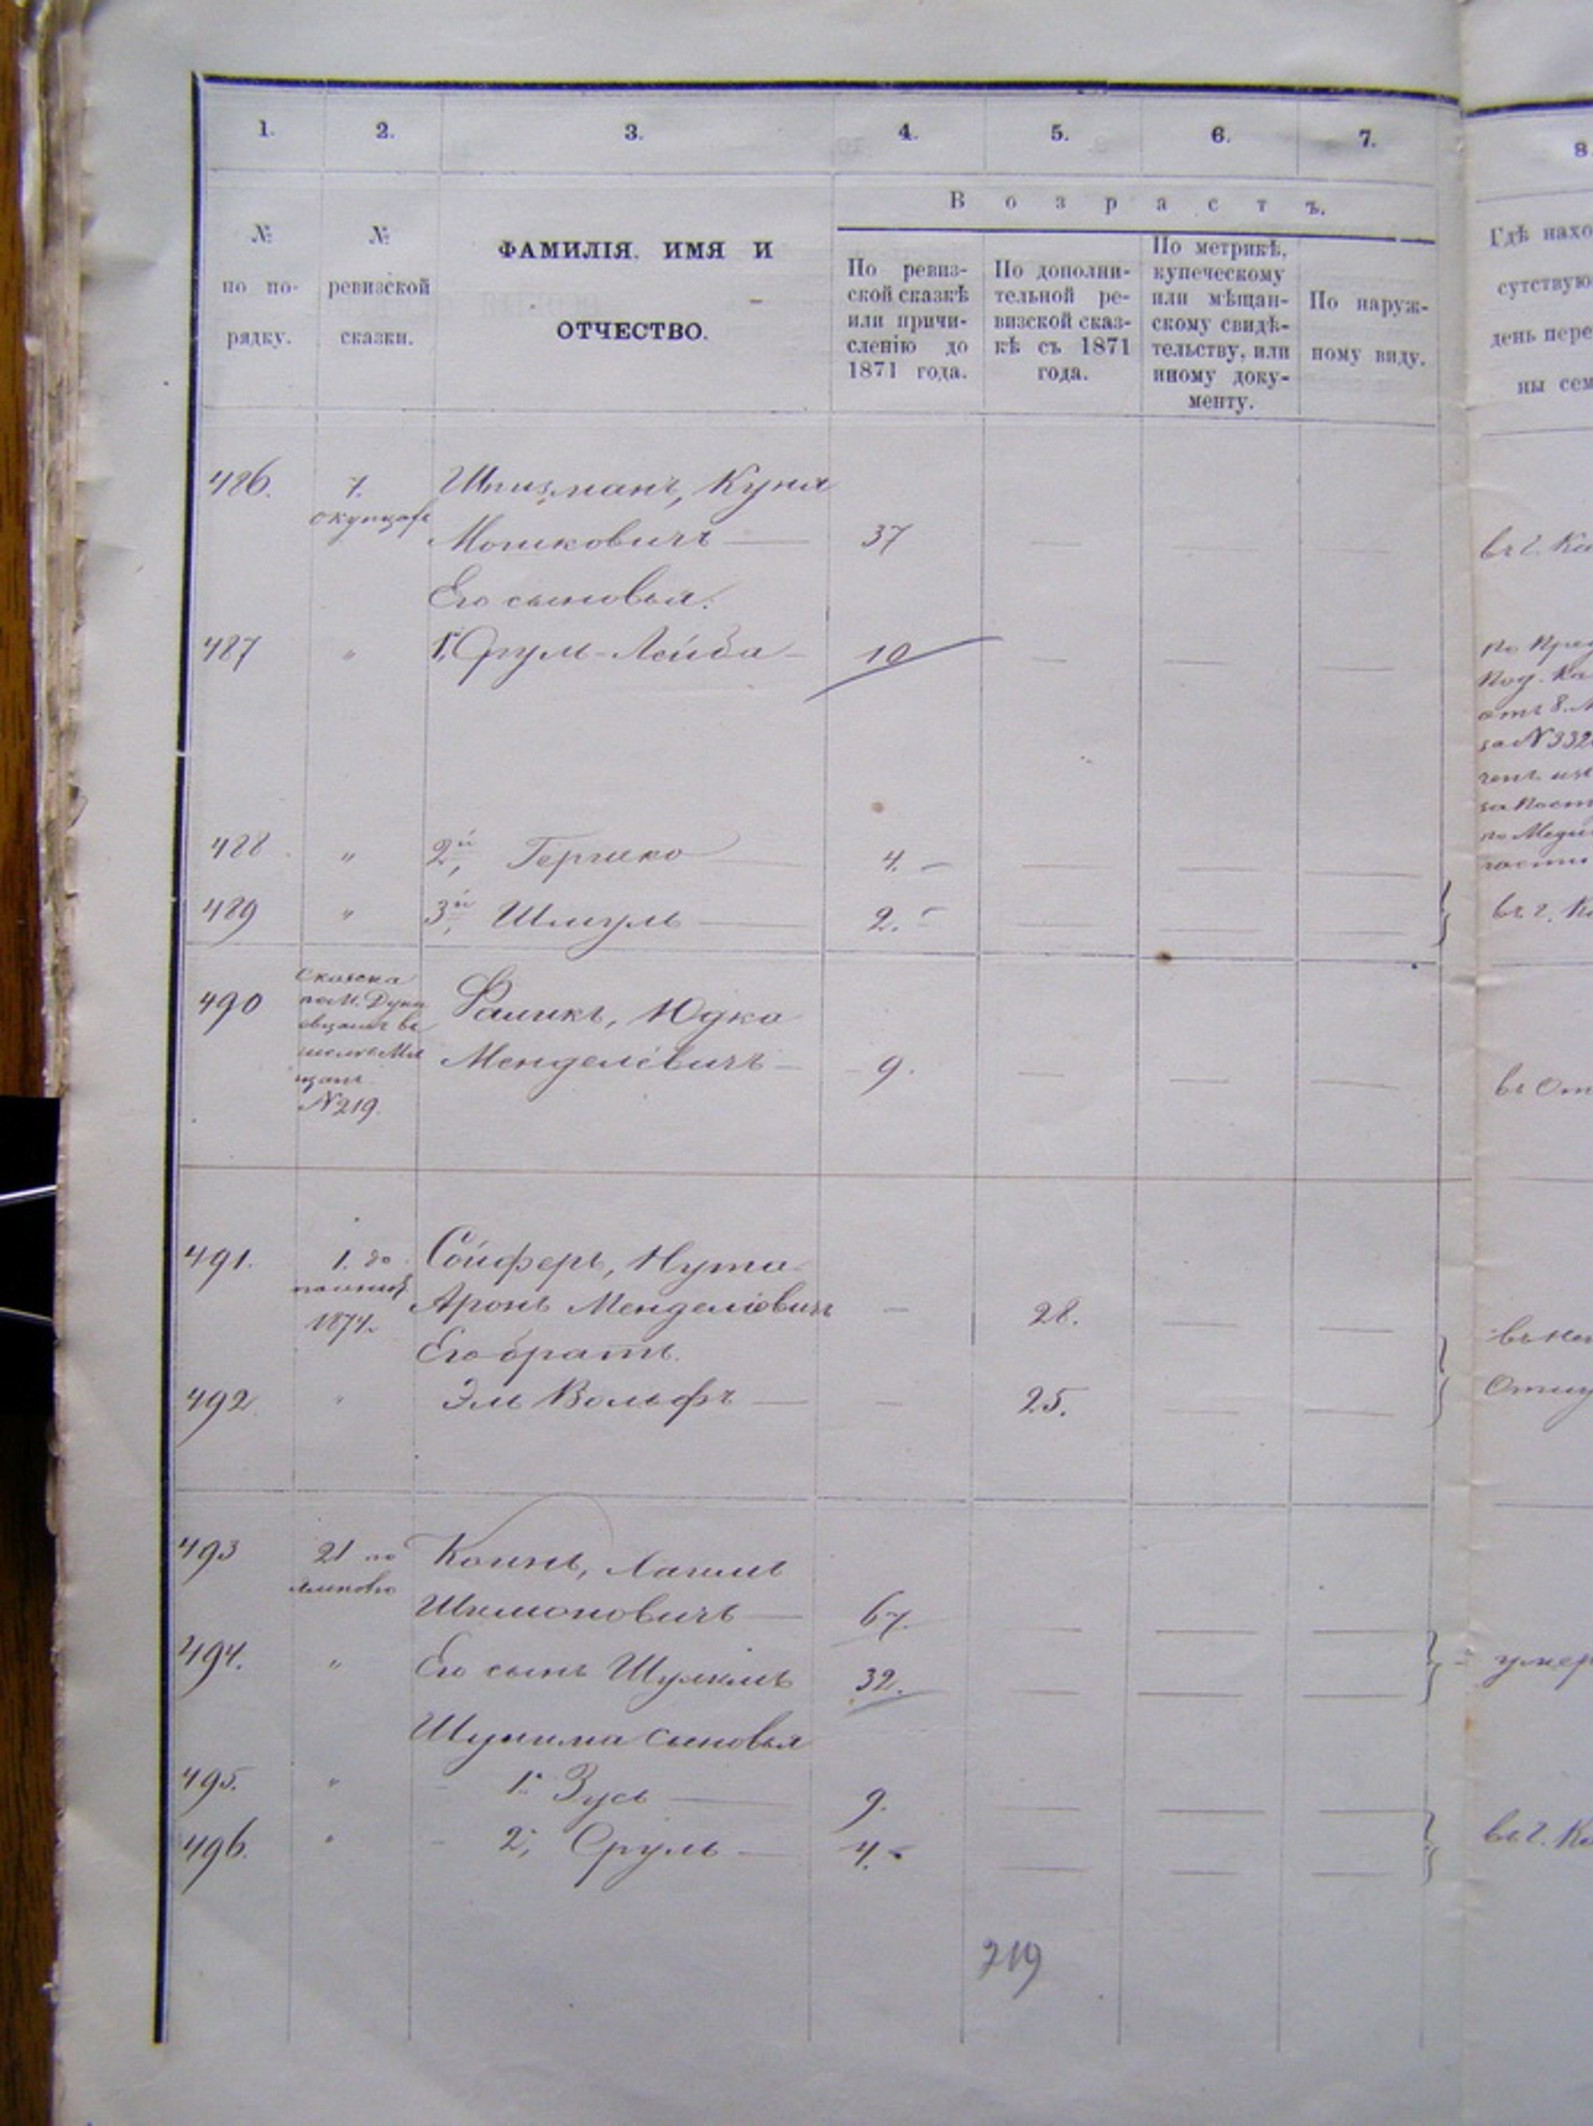 1. 2. 3. 4. 5. 6. 7. 8
№
по по-
рядку.
№
ревизской
сказки.
ФАМИЛІЯ. ИМЯ И
ОТЧЕСТВО.
Возрастъ.
По ревиз-
ской сказкѣ
или причи-
сленію до
1871 года.
По дополни-
тельной ре-
визской сказ-
кѣ съ 1871
года.
По метрикѣ,
купеческому
или мѣщан-
скому свидѣ-
тельству, или
иному доку-
менту.
По наруж-
ному виду.
Гдѣ нахо
сутствую
день пере
ны сем
486. 7. Шпизманъ, Куня
Мошковичъ — 37 — — — въ г. Ка
Его сыновья:
487 " 1, Срул-Лейба — 10 — — —
по пред
Под. Ка
отъ 8.
за N 332
488 " 2й, Гершко — 4. — — — —
489 " 3й, Шмуль — 2. — — — — въ г. К
490 Сказка
N 219.
Фаликъ, Юдко
Менделевичъ — 9. — — — въ От
491. 1. до
1874.
Сойферъ, Нута
Аронъ Менделевичъ — 28. — —
Его братъ.
492 " Эль Вольфъ — — 25. — —
493 21 Коинъ, Хаимъ
Шимоновичъ — 67. — — —
494. " Его сынъ Шулимъ 32. — — — умер
Шулима сыновья
495. " 1. Зусь — 9. — — —
496. " 2, Сруль — 4. — — — въ г. К
219